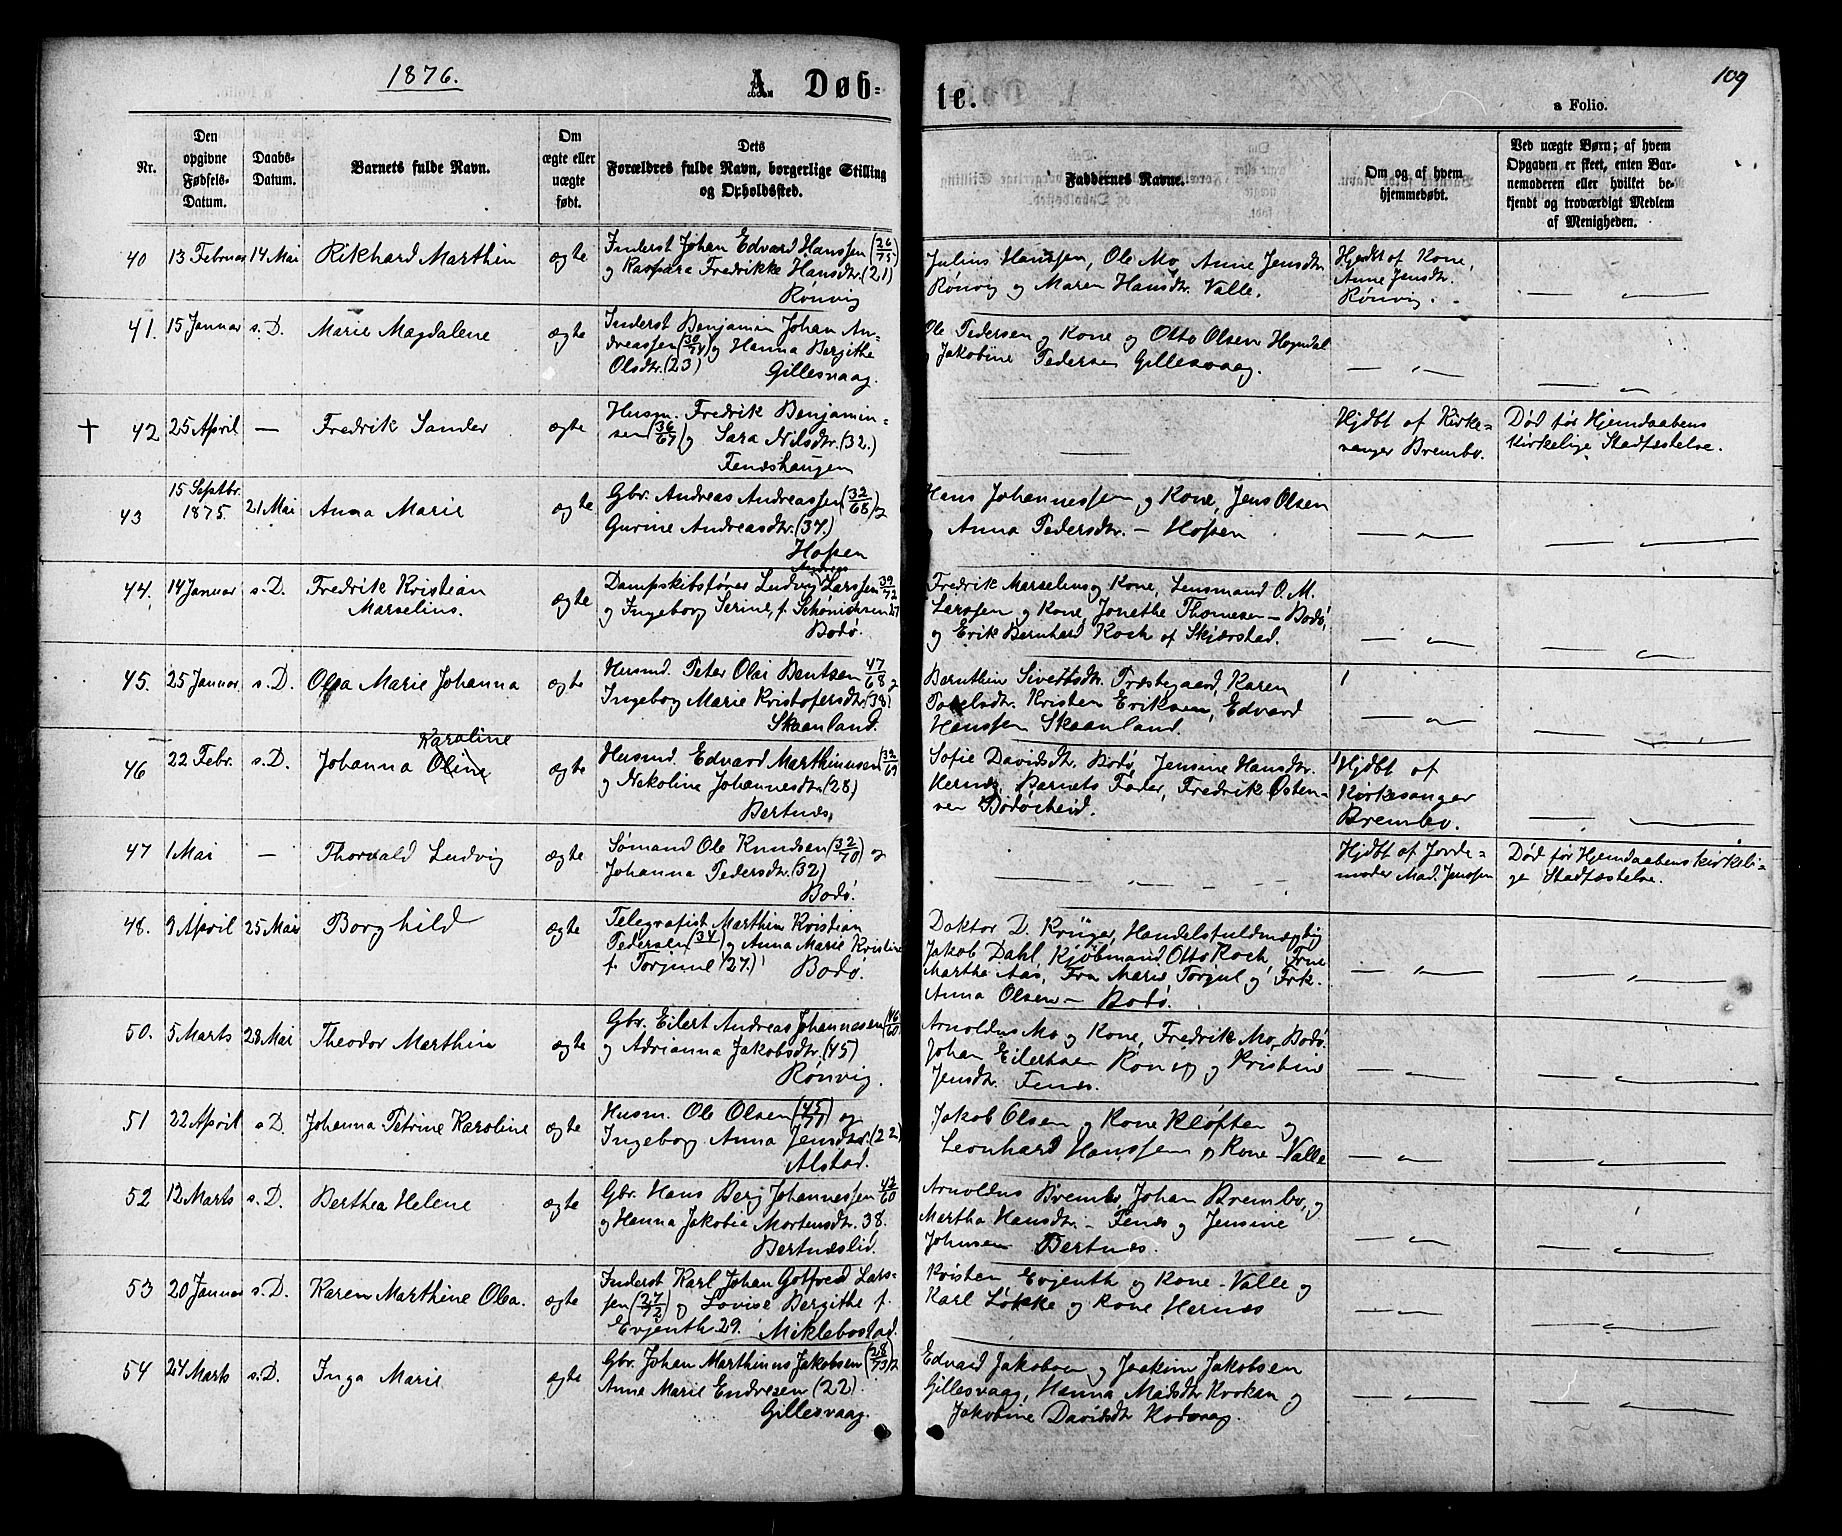 1876.
A. Døb-
te.
a Folio.
109
Nr.
Den
opgivne
Fødsels-
Datum.
Daabs-
Datum.
Barnets fulde Navn.
Om
ægte eller
uægte
født.
Dets
Forældres fulde Navn, borgerlige Stilling
og Opholdssted.
Faddernes Navne.
Om og af hvem
hjemmedøbt.
Ved uægte Børn; af hvem
Opgaven er skeet, enten Bar-
nemoderen eller hvilket be-
kjendt og troværdigt Medlem
af Menigheden.
40 13 Februar 14 Mai Rikhard Marthin ægte
Inderst Johan Edvard Hanssen (26/75)
og Kaspara Fredrikke Hansdtr. (21)
Rønvig
Julius Hanssen, Ole Mo, Anne Jensdtr.
Rønvig og Maren Hansdtr. Valle.
Hjdbt af Kone,
Anne Jensdtr.
Rønvig.
41. 15 Januar s. D. Marie Magdalene ægte
Inderst Benjamin Johan An-
dreassen (30/74) og Hanna Bergithe
Olsdtr. (23)
Gillesvaag.
Ole Pedersen og Kone og Otto Olsen Hogndal
og Jakobine Pedersen Gillesvaag.
† 42 25 April — Fredrik Sander ægte
Husm. Fredrik Benjamin-
sen (36/67) og Sara Nilsdtr. (32.)
Fenæshaugen
Hjdbt af Kirke-
sanger Brembo.
Død før Hjemdaabens
kirkelige Stadfæstelse.
43 15 Septbr. 1875. 21 Mai Anna Marie ægte
Gbr. Andreas Andreassen (32/68) og
Gurine Andreasdtr. (37.)
Hopen
Hans Johannessen og Kone, Jens Olsen
og Anna Pedersdtr. — Hopen
44. 14 Januar s. D. Fredrik Kristian
Marselius.
ægte
Andreas
Dampskibsfører Ludvig Larssen 39/72
og Ingeborg Serine, f. 27
Bodø.
Fredrik Marselius og Kone, Lensmand O. M.
Larssen og Kone, Jonethe Thomesen — Bodø,
og Erik Bernhard Koch af Skjærstad.
45. 25 Januar. s. D. Olsa Marie Johanna ægte
Husmd. Peter Olai Bentsen 47/68 og
Ingebog Marie Kristofersdtr. (38)
Skaanland.
Sivertsdtr. Præstegaard, Karen
Kristen Eriksen, Edvard
Hanssen Skaanland.
Karoline
46 22 Febr. s. D. Johanna Oline ægte
Husmd. Edvard Marthinusen (32/69)
og Nekoline Johannesdtr. (28)
Bertnæs.
Sofie Davidsdtr. Bodø, Jensine Hansdtr.
Hernæs, Barnets Fader, Fredrik Osten-
sen Bodøeheid.
Hjdbt af
Kirkesanger
Brembo.
47 1 Mai — Thorvald Ludvig ægte
Sømand Ole Knudsen (32/70) og
Johanna Pedersdtr. (32)
Bodø.
Hjdbt af Jorde-
moder Mad. Jenssen
Død før Hjemdaabens kirkeli-
ge Stadfæstelse.
48. 9 April 25 Mai Borghild ægte
Telegrafist Marthin Kristian
Pedersen (34) og Anna Marie Kristine
f. Torjusel (27.) Bodø.
Doktor D. Krüger, Handelsfuldmægtig
Jakob Dahl, Kjøbmand Otto Koch, Frue
Martha Aas, Fru Marie Torjul og Frk.
Anna Olsen — Bodø.
50. 5 Marts 28 Mai Theodor Marthin ægte
Gbr. Eilert Andreas Johannesen (46/60)
og Adrianna Jakobsdtr. (45)
Rønvig.
Arnoldus Mo og Kone, Fredrik Mo, Bodø.
Johan Eilertsen Rønvig og Kristine
Jensdtr. Fenæs.
51 22 April s. D. Johanna Petrine Karoline ægte
Husm. Ole Olsen (45/71) og
Ingeborg Anna Jensdtr. (22)
Alstad.
Jakob Olsen og Kone Kløften og
Leonhard Hanssen og Kone Valle
52 12 Marts s. D. Berthea Helene ægte
Gbr. Hans Berg Johannessen 42/60
og Hanna Jakobia Mortensdtr. 38.
Bertnæslid.
Arnoldus Brembo, Johan Brembo, og
Martha Hansdtr. — Fenæs og Jensine
Johnsen Bertnæs.
53 20 Januar s. D. Karen Marthine Olsa. ægte
Inderst Karl Johan Gotfred Lars-
sen (27/73) og Lovise Bergithe f.
Evjenth 29. Miklebostad.
Kristen Evjenth og Kone — Valle og
Karl Løkke og Kone Hernæs
54 24 Marts s. D. Inga Marie ægte
Gbr. Johan Marthinus Jakobsen (28/73) og
Anna Marie Endresen (22)
Gillesvaag.
Edvard Jakobsen og Joakim Jakobsen
Gillesvaag, Hanna Madsdtr. Kroken og
Jakobine Davidsdtr Kodvaag.